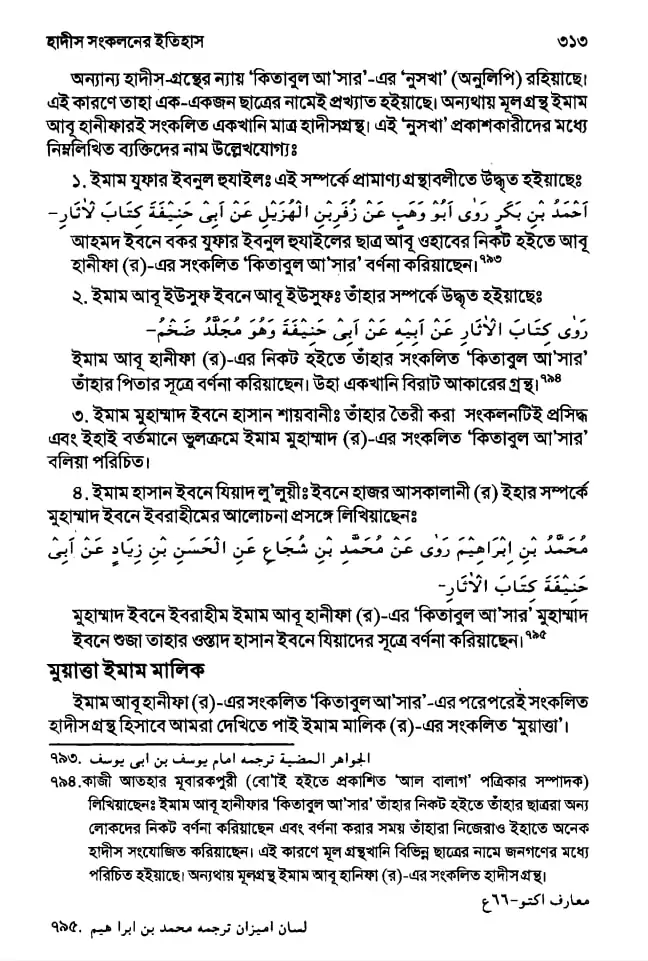 হাদীস সংকলনের ইতিহাস ৩১৩
অন্যান্য হাদীস-গ্রন্থের ন্যায় ‘কিতাবুল আ’সার’-এর ‘নুসখা’ (অনুলিপি) রহিয়াছে।
এই কারণে তাহা এক-একজন ছাত্রের নামেই প্রখ্যাত হইয়াছে। অন্যথায় মূলগ্রন্থ ইমাম
আবূ হানীফারই সংকলিত একখানি মাত্র হাদীসগ্রন্থ। এই ‘নুসখা’ প্রকাশকারীদের মধ্যে
নিম্নলিখিত ব্যক্তিদের নাম উল্লেখযোগ্যঃ
১. ইমাম যুফার ইবনুল হুযাইলঃ এই সম্পর্কে প্রামাণ্য গ্রন্থাবলীতে উদ্ধৃত হইয়াছেঃ
اَحْمَدُ بْنِ بَكَرٍ رَوٰى اَبُوْ وَهَبٍ عَنْ زُفَرِبْنِ الْهُزَيْلِ عَنْ اَبِىْ حَنِيْفَةَ كِتَابَ لْاٰثَارِ-
আহমদ ইবনে বকর যুফার ইবনুল হুযাইলের ছাত্র আবূ ওহাবের নিকট হইতে আবূ
হানীফা (র)-এর সংকলিত ‘কিতাবুল আ’সার’ বর্ণনা করিয়াছেন।৭৯৩
২. ইমাম আবূ ইউসুফ ইবনে আবূ ইউসুফঃ তাঁহার সম্পর্কে উদ্ধৃত হইয়াছেঃ
رَوٰى كِتَابَ الْاٰثَارِ عَنْ اَبِيْهِ عَنْ اَبِىْ حَنِيْفَةَ وَهُوَ مُجَلَّدُ ضَخْمُ-
ইমাম আবূ হানীফা (র)-এর নিকট হইতে তাঁহার সংকলিত ‘কিতাবুল আ’সার’
তাঁহার পিতার সূত্রে বর্ণনা করিয়াছেন। উহা একখানি বিরাট আকারের গ্রন্থ।৭৯৪
৩. ইমাম মুহাম্মাদ ইবনে হাসান শায়বানীঃ তাঁহার তৈরী করা সংকলনটিই প্রসিদ্ধ
এবং ইহাই বর্তমানে ভুলক্রমে ইমাম মুহাম্মাদ (র)-এর সংকলিত ‘কিতাবুল আ’সার’
বলিয়া পরিচিত।
৪. ইমাম হাসান ইবনে যিয়াদ লু’লুয়ীঃ ইবনে হাজর আসকালানী (র) ইহার সম্পর্কে
মুহাম্মাদ ইবনে ইবরাহীমের আলোচনা প্রসঙ্গে লিখিয়াছেনঃ
مُحَمَّدُ بْنِ اِبْرَاهِيْمَ رَوٰى عَنْ مُحَمَّدِ بْنِ شُجَاعٍ عَنِ الْحَسَنِ بْنِ زِيَادٍ عَنْ اَبِىْ
حَنِيْفَةَ كِتَابَ الْاٰثَارِ-
মুহাম্মাদ ইবনে ইবরাহীম ইমাম আবূ হানীফা (র)-এর ‘কিতাবুল আ’সার’ মুহাম্মাদ
ইবনে শুজা তাহার ওস্তাদ হাসান ইবনে যিয়াদের সূত্রে বর্ণনা করিয়াছেন।৭৯৫
মুয়াত্তা ইমাম মালিক
ইমাম আবূ হানীফা (র)-এর সংকলিত ‘কিতাবুল আ’সার’-এর পরেপরেই সংকলিত
হাদীসগ্রন্থ হিসাবে আমরা দেখিতে পাই ইমাম মালিক (র)-এর সংকলিত ‘মুয়াত্তা’।
৭৯৩. الجواهر المضية ترجمه امام يوسف بن ابى يوسف
৭৯৪. কাজী আতহার মূবারকপুরী (বো’াই হইতে প্রকাশিত ‘আল বালাগ’ পত্রিকার সম্পাদক)
লিখিয়াছেনঃ ইমাম আবূ হানীফার ‘কিতাবুল আ’সার’ তাঁহার নিকট হইতে তাঁহার ছাত্ররা অন্য
লোকদের নিকট বর্ণনা করিয়াছেন এবং বর্ণনা করার সময় তাঁহারা নিজেরাও ইহাতে অনেক
হাদীস সংযোজিত করিয়াছেন। এই কারণে মূল গ্রন্থখানি বিভিন্ন ছাত্রের নামে জনগণের মধ্যে
পরিচিত হইয়াছে। অন্যথায় মূলগ্রন্থ ইমাম আবূ হানিফা (র)-এর সংকলিত হাদীসগ্রন্থ।
معارف اكتو-٦٦ع
৭৯৫. لسان اميزان ترجمه محمد بن ابرا هيم